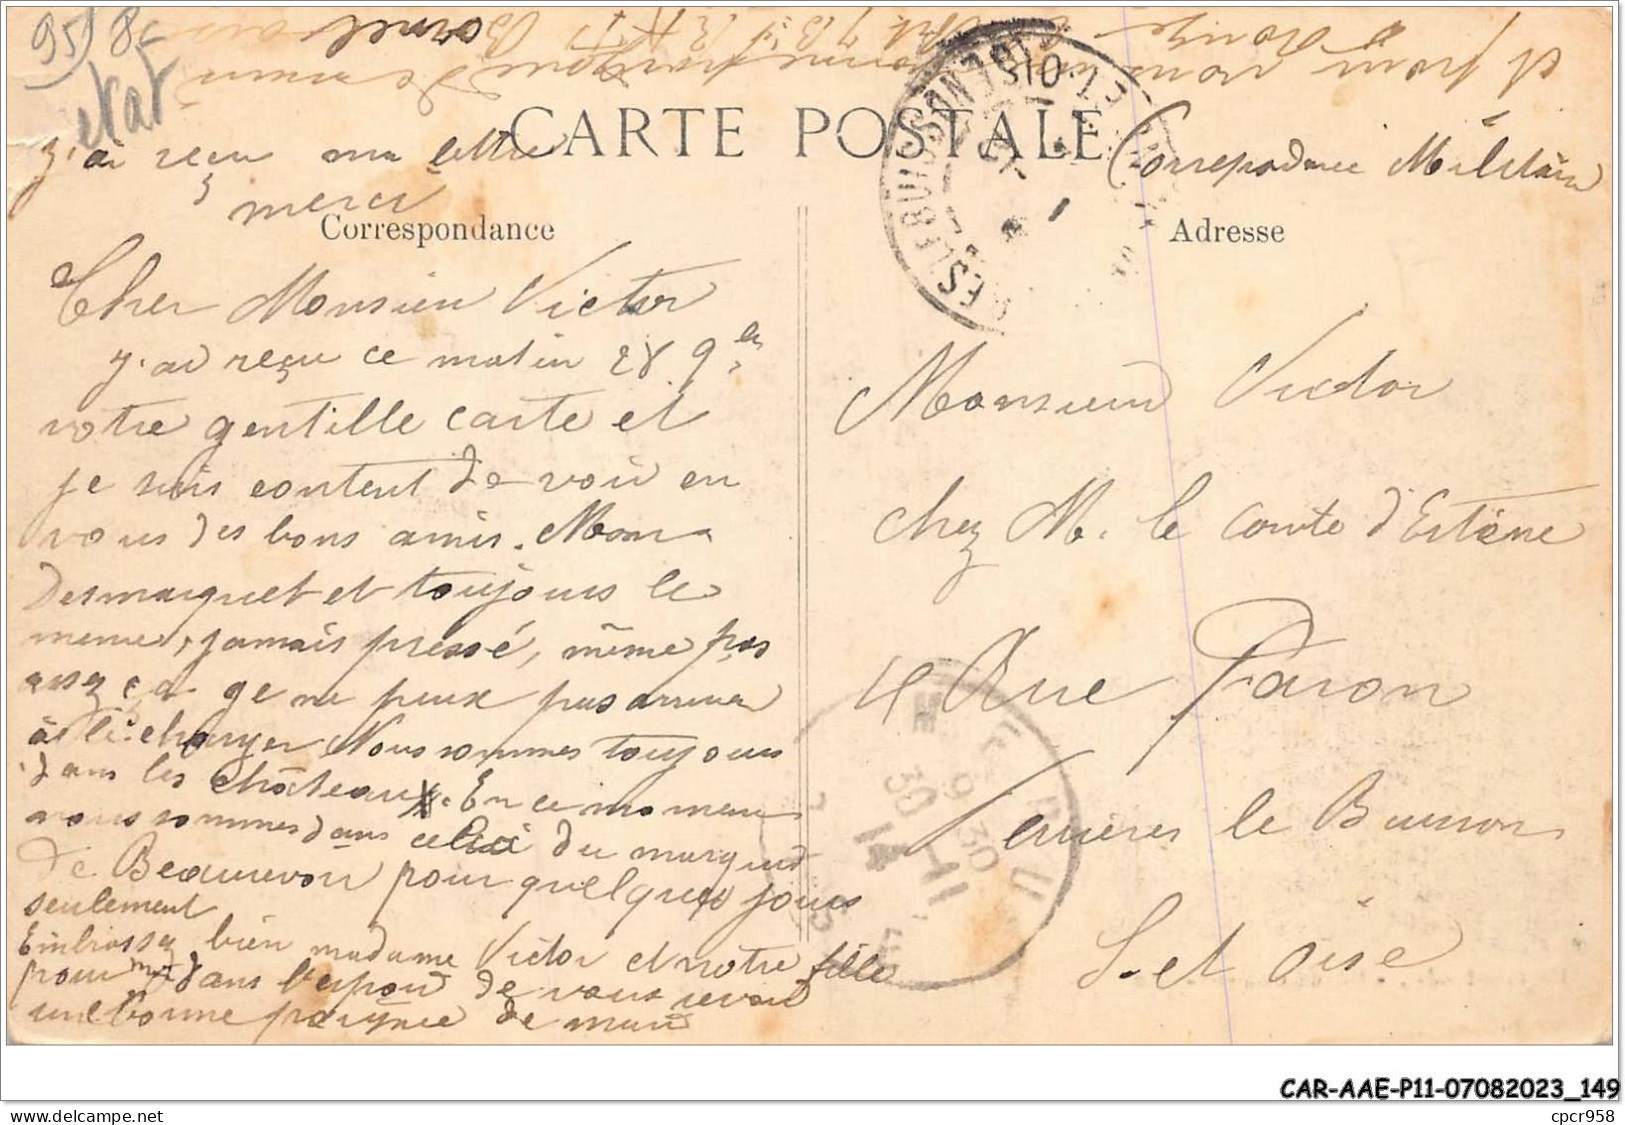 95/85
CARTE POSTALE
J'ai reçu ma lettre
merci
Correspondance
Cher Monsieur Victor
j'ai reçu ce matin 28 9
votre gentille carte et
je suis content de voir en
vous des bons amis. Mon
Desmarquet et toujours le
meme, jamais pressé, même pas
assez ça ge ne peux pas arriver
à le changer Nous sommes toujours
dans les châteaux. En ce momen
nous sommes dans celui du marquis
de Beaurevoir pour quelques jours
seulement
Embrassez bien madame Victor et votre fille
pour moi dans l'espoir de vous revoir
une bonne poignée de main
et pour vous une bonne poignée de main
Correspondance Militaire
Adresse
Monsieur Victor
chez M. le Comte d'Estène
4 Rue Paron
Verrières le Buisson
S. et Oise
9 30
30 -11
14
CAR-AAE-P11-07082023_149
www.delcampe.net
cpcr958